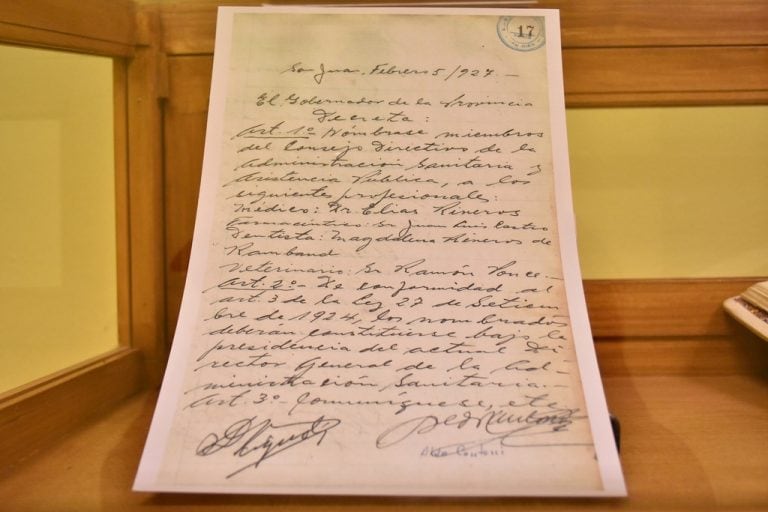 17
San Juan, Febrero 5/927.-
El Gobernador de la Provincia
Decreta:
Art. 1º Nómbrase miembros
del Consejo Directivo de la
Administración Sanitaria y
Asistencia Pública, a los
siguientes profesionales:
Médico: Dr. Elias
Farmacéutico: Sr Juan Luis Castro
Dentista: Magdalena de
Rambaud
Veterinario: Sr. Ramón Ponce.-
Art. 2º- De conformidad al
art. 3 de la Ley 27 de Setiem
bre de 1924, los nombrados
deberán constituirse bajo la
presidencia del actual Di
rector General de la Ad-
ministración Sanitaria.-
Art. 3º- Comuníquese, etc
Aldo Cantoni